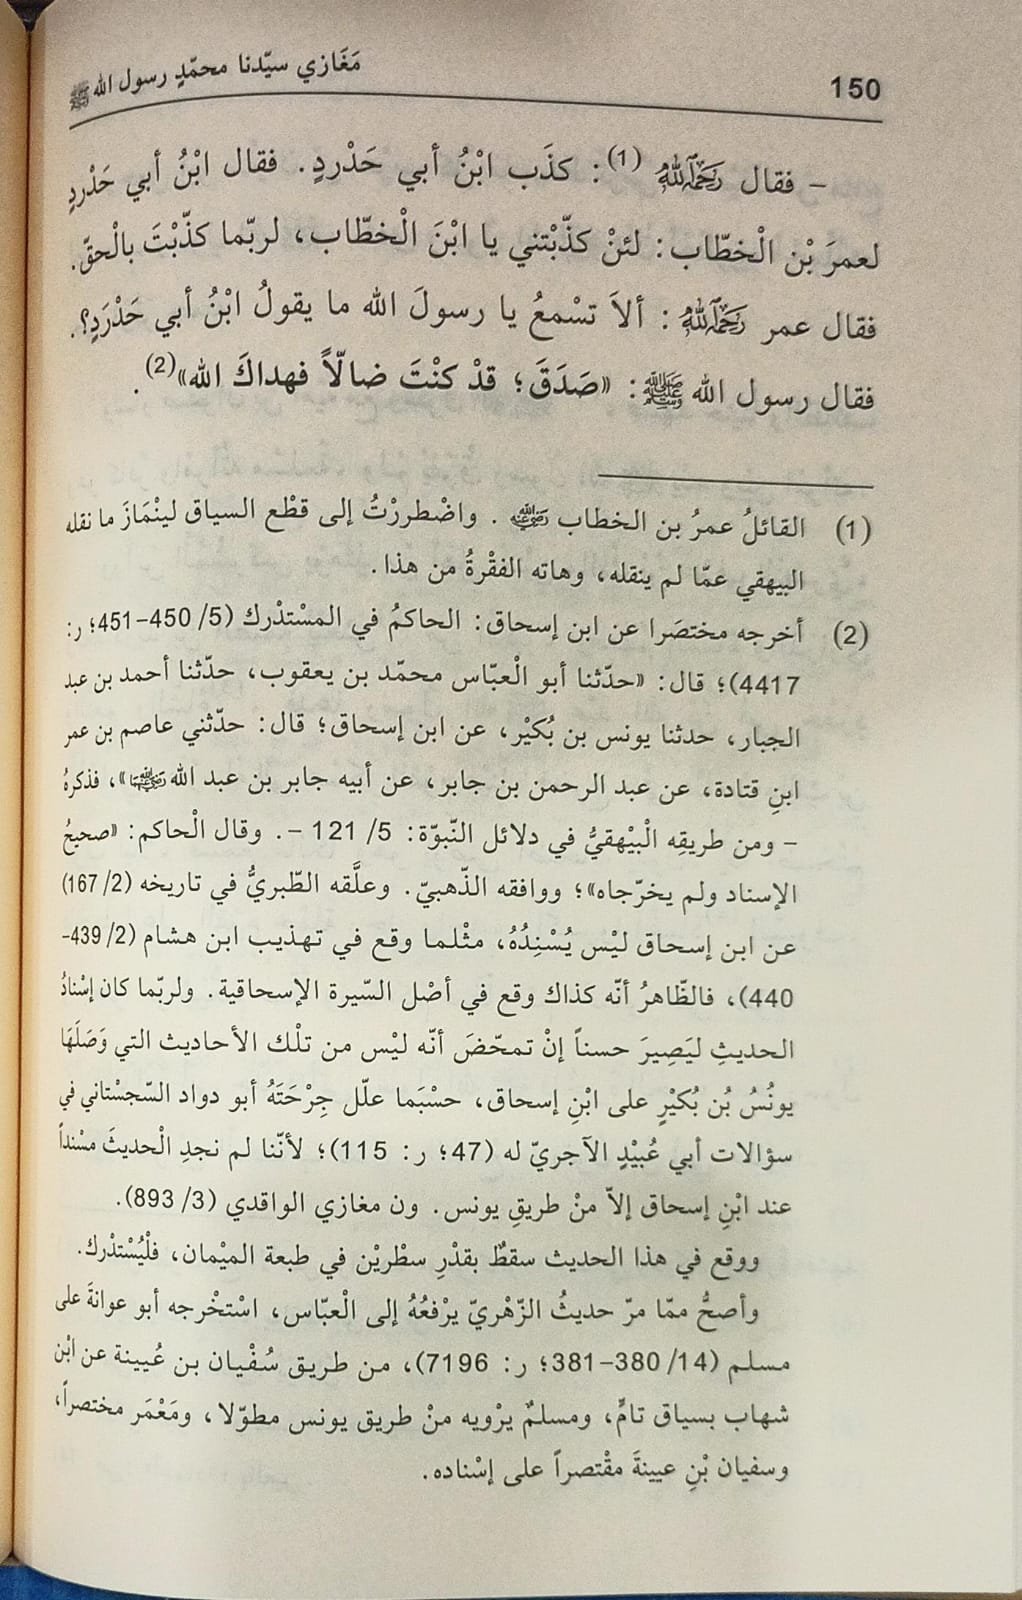 150
مَغَازي سيّدنا محمّدٍ رسول الله ﷺ
– فقال رَحِمَهُ ٱللَّهُ (1): كذَب ابْنُ أبي حَدْردٍ. فقال ابْنُ أبي حَدْردٍ
لعمرَ بْن الْخطّاب: لئنْ كذّبْتني يا ابْنَ الْخطّاب، لربّما كذّبْتَ بالْحقّ.
فقال عمر رَحِمَهُ ٱللَّهُ: ألاَ تسْمعُ يا رسولَ الله ما يقولُ ابْنُ أبي حَدْرَدٍ؟.
فقال رسول الله ﷺ: «صَدَقَ؛ قدْ كنْتَ ضالّاً فهداكَ الله»(2).
(1) القائلُ عمرُ بن الخطاب رضي الله عنه. واضْطررْتُ إلى قطْع السياق لينْمازَ ما نقله
البيهقي عمّا لم ينقله، وهاته الفقْرةُ من هذا.
(2) أخرجه مختصَرا عن ابن إسحاق: الحاكمُ في المسْتدْرك (5/ 450–451؛ ر:
4417)؛ قال: «حدّثنا أبو الْعبّاس محمّد بن يعقوب، حدّثنا أحمد بن عبد
الجبار، حدثنا يونس بن بُكيْر، عن ابن إسحاق؛ قال: حدّثني عاصم بن عمر
ابنِ قتادة، عن عبد الرحمن بن جابر، عن أبيه جابر بن عبد الله رضي الله عنهما»، فذكرهُ
– ومن طريقِه الْبيْهقيُّ في دلائل النّبوّة: 5/ 121 –. وقال الْحاكم: «صحيحُ
الإسناد ولم يخرّجاه»؛ ووافقه الذّهبيّ. وعلَّقه الطّبريُّ في تاريخه (2/ 167)
عن ابن إسحاق ليْس يُسْنِدُهُ، مثْلما وقع في تهذيب ابن هشام (2/ 439–
440)، فالظّاهرُ أنّه كذاك وقع في أصْل السّيرة الإسحاقية. ولربّما كان إسْنادُ
الحديثِ ليَصِيرَ حسناً إنْ تمحّضَ أنّه ليْس من تلْك الأحاديث التي وَصَلَهَا
يونُسُ بُن بُكيْرٍ على ابْنِ إسحاق، حسْبَما علّل جِرْحَتَهُ أبو دواد السّجسْتاني في
سؤالات أبي عُبيْدٍ الآجريّ له (47؛ ر: 115)؛ لأنّنا لم نجدِ الْحديثَ مسْنداً
عند ابْنِ إسحاق إلاّ منْ طريقِ يونس. ون مغازي الواقدي (3/ 893).
ووقع في هذا الحديث سقطٌ بقدْرِ سطْريْن في طبعة الميْمان، فلْيُسْتدْرك.
وأصحُّ ممّا مرّ حديثُ الزّهْريّ يرْفعُهُ إلى الْعبّاس، اسْتخْرجه أبو عوانةَ على
مسلم (14/ 380–381؛ ر: 7196)، من طريق سُفْيان بن عُيينة عن ابْن
شهاب بسياق تامٍّ، ومسلمٌ يرْويه منْ طريق يونس مطوّلا، ومَعْمَر مختصراً،
وسفيان بْنِ عيينةَ مقْتصراً على إسْناده.